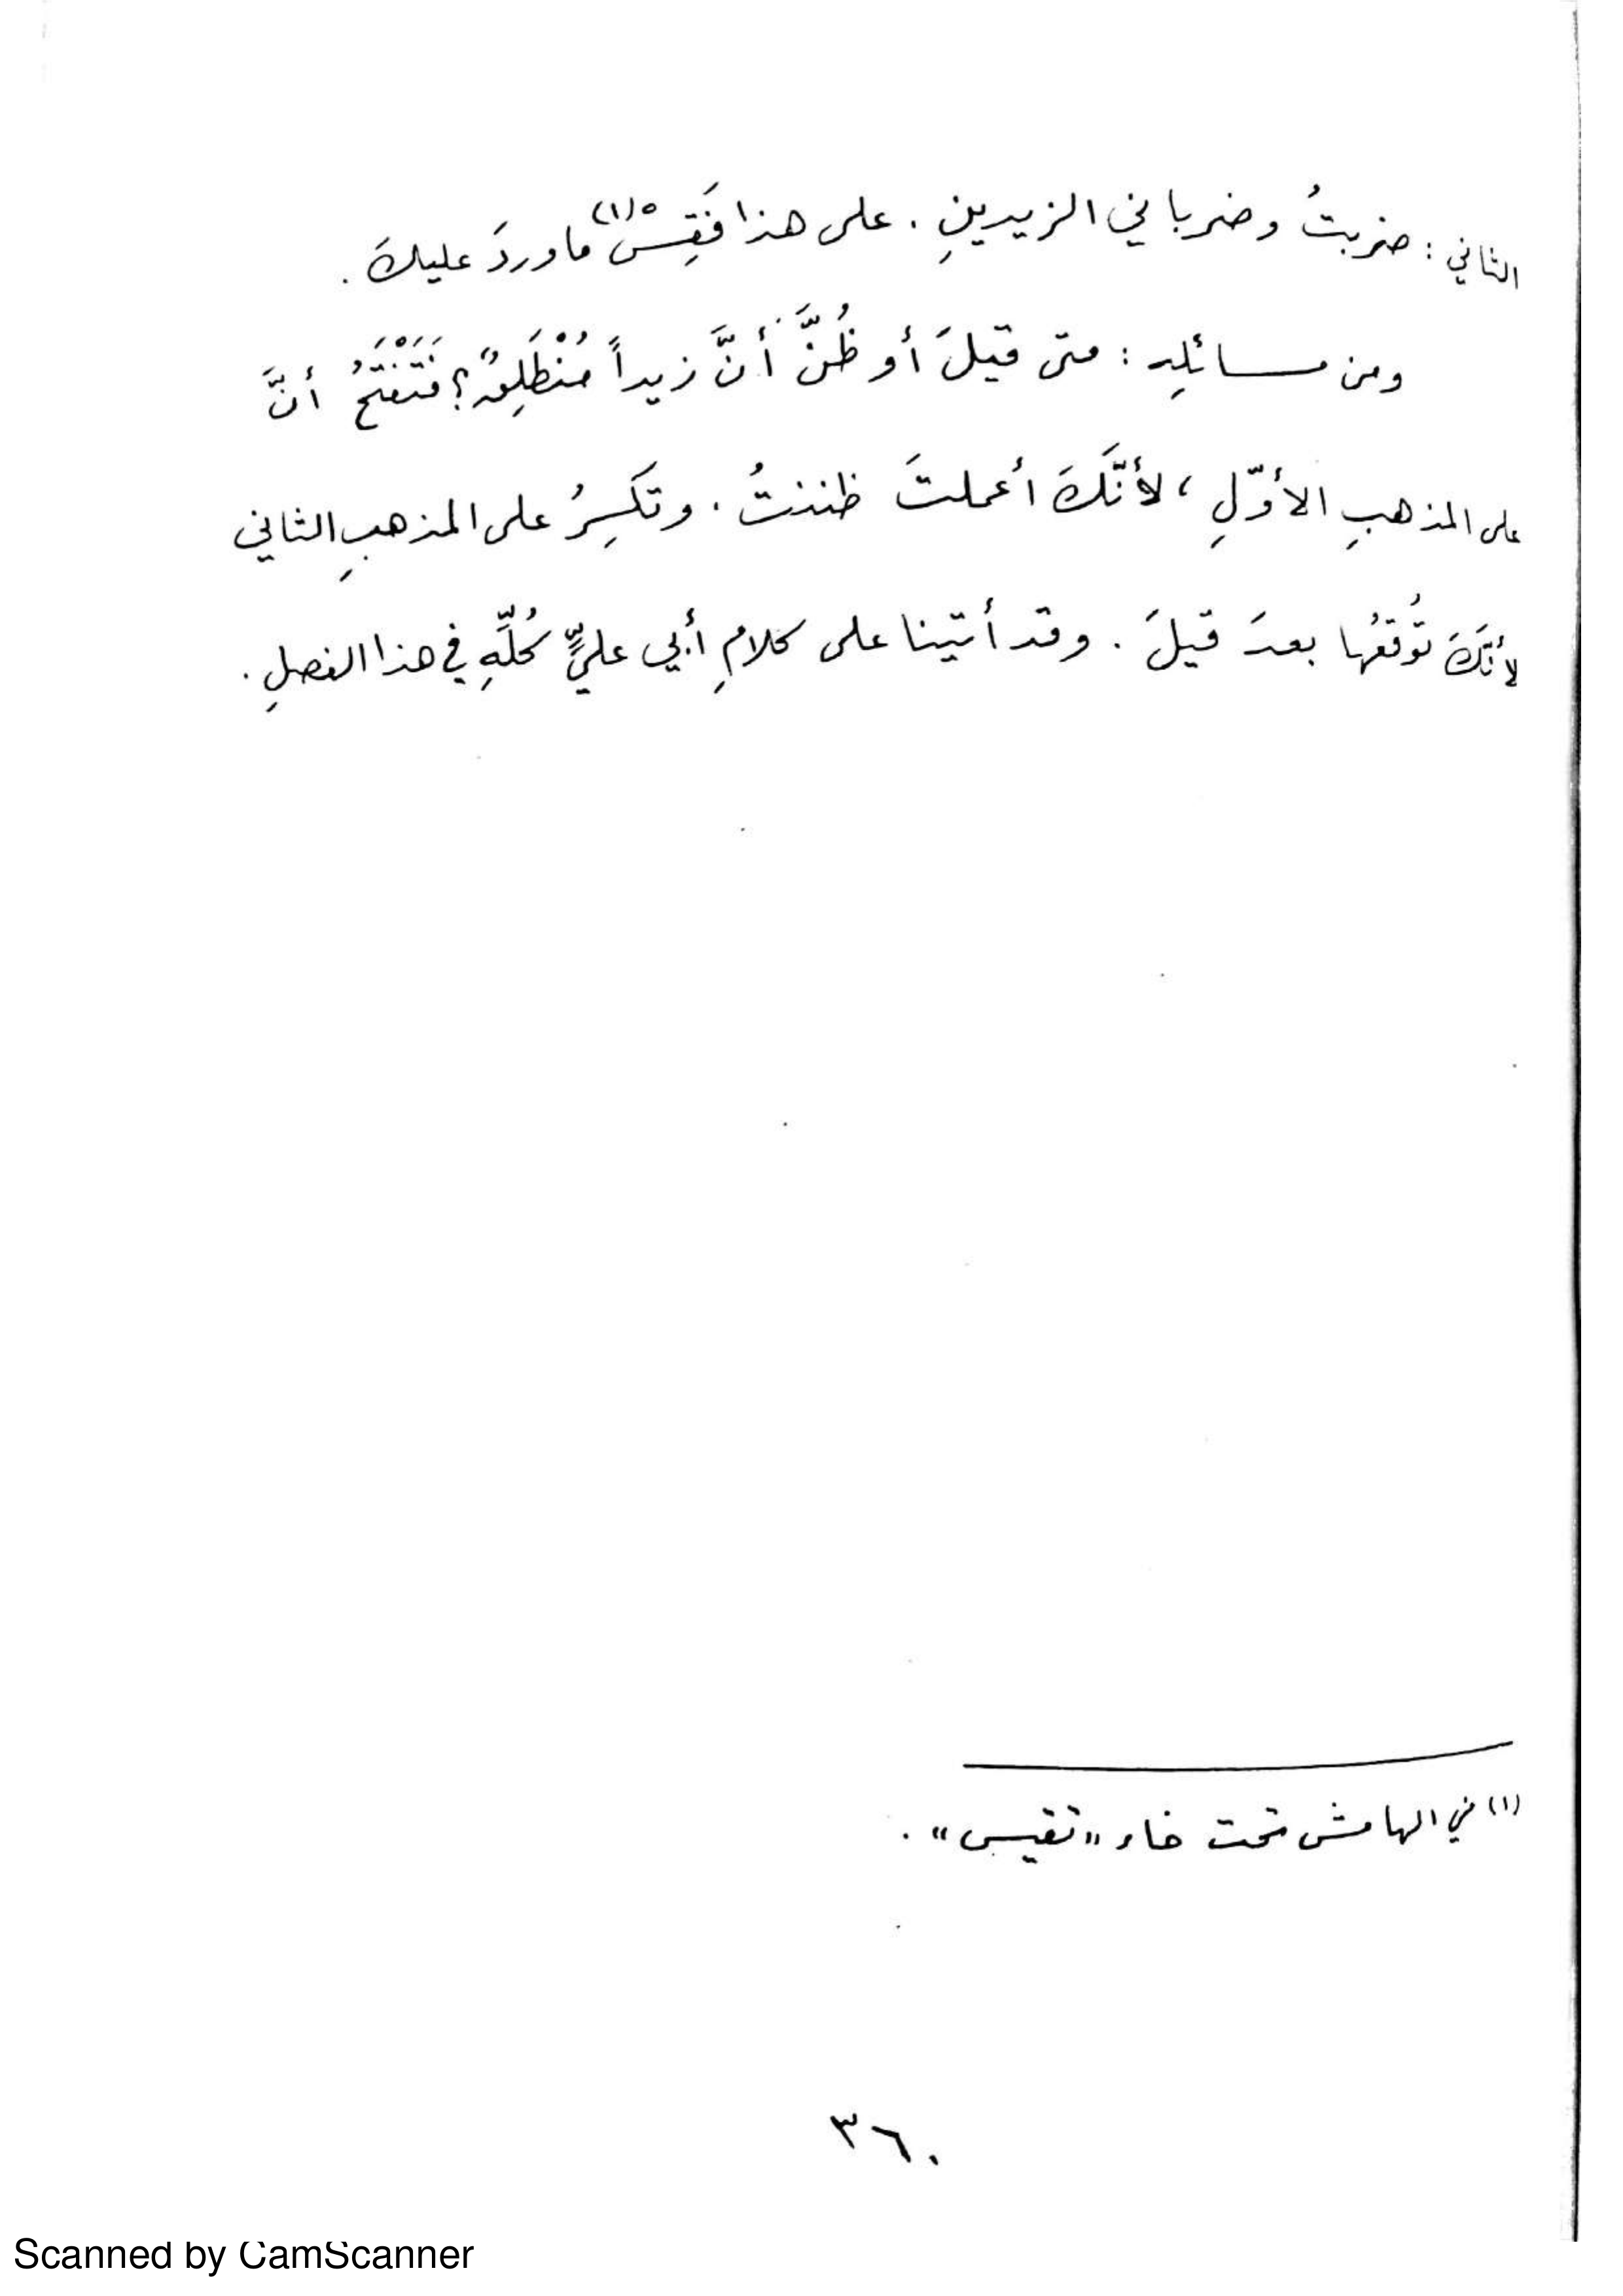 الثاني : ضربتُ وضرباني الزيدينِ . على هذا فَقِسْ(١) ما وردَ عليكَ .
ومن مسائلِه : متى قيلَ أو ظُنَّ أنَّ زيداً مُنْطَلِقٌ ؟ فَتَفْتَحُ أنَّ
على المذهبِ الأوّلِ ، لأنَّكَ أعملتَ ظننتُ . وتكسِرُ على المذهبِ الثاني
لأنَّكَ تُوقعُها بعدَ قيلَ . وقد أتينا على كلامِ أبي عليٍّ كُلِّهِ في هذا الفصلِ .
(١) في الهامش تحت خاء « تقيس » .
٣٦٠
Scanned by CamScanner